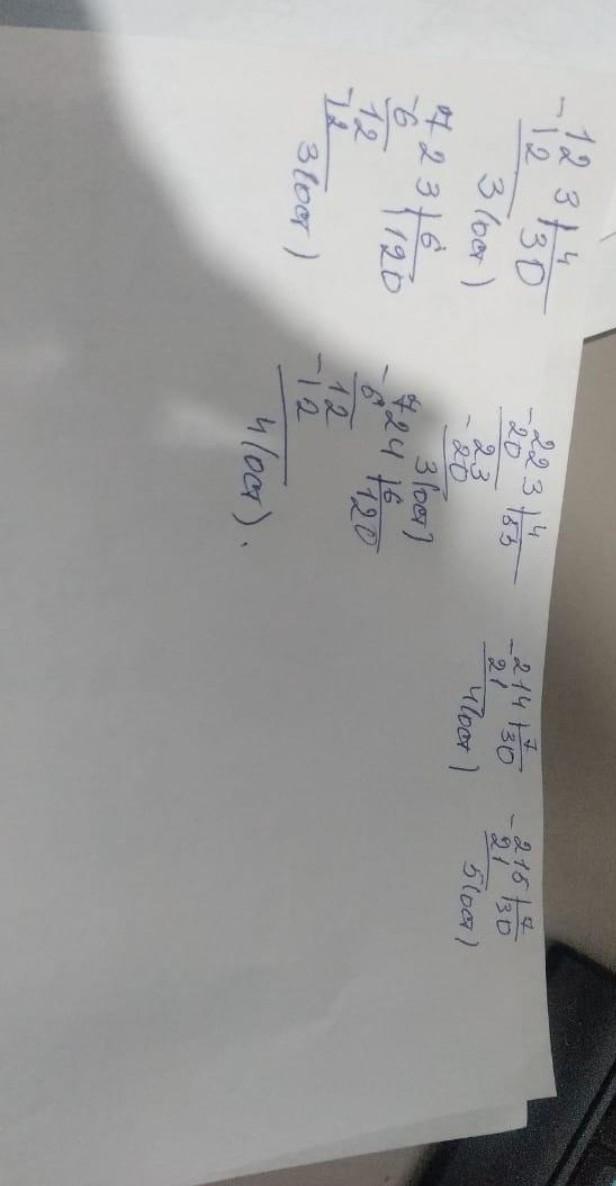 -123 | 4
12 | 30
3 (ост)
-223 | 4
20 | 55
-23
20
3 (ост)
-214 | 7
21 | 30
4 (ост)
-215 | 7
21 | 30
5 (ост)
723 | 6
-6 | 120
12
-12
3 (ост)
724 | 6
-6 | 120
12
-12
4 (ост).